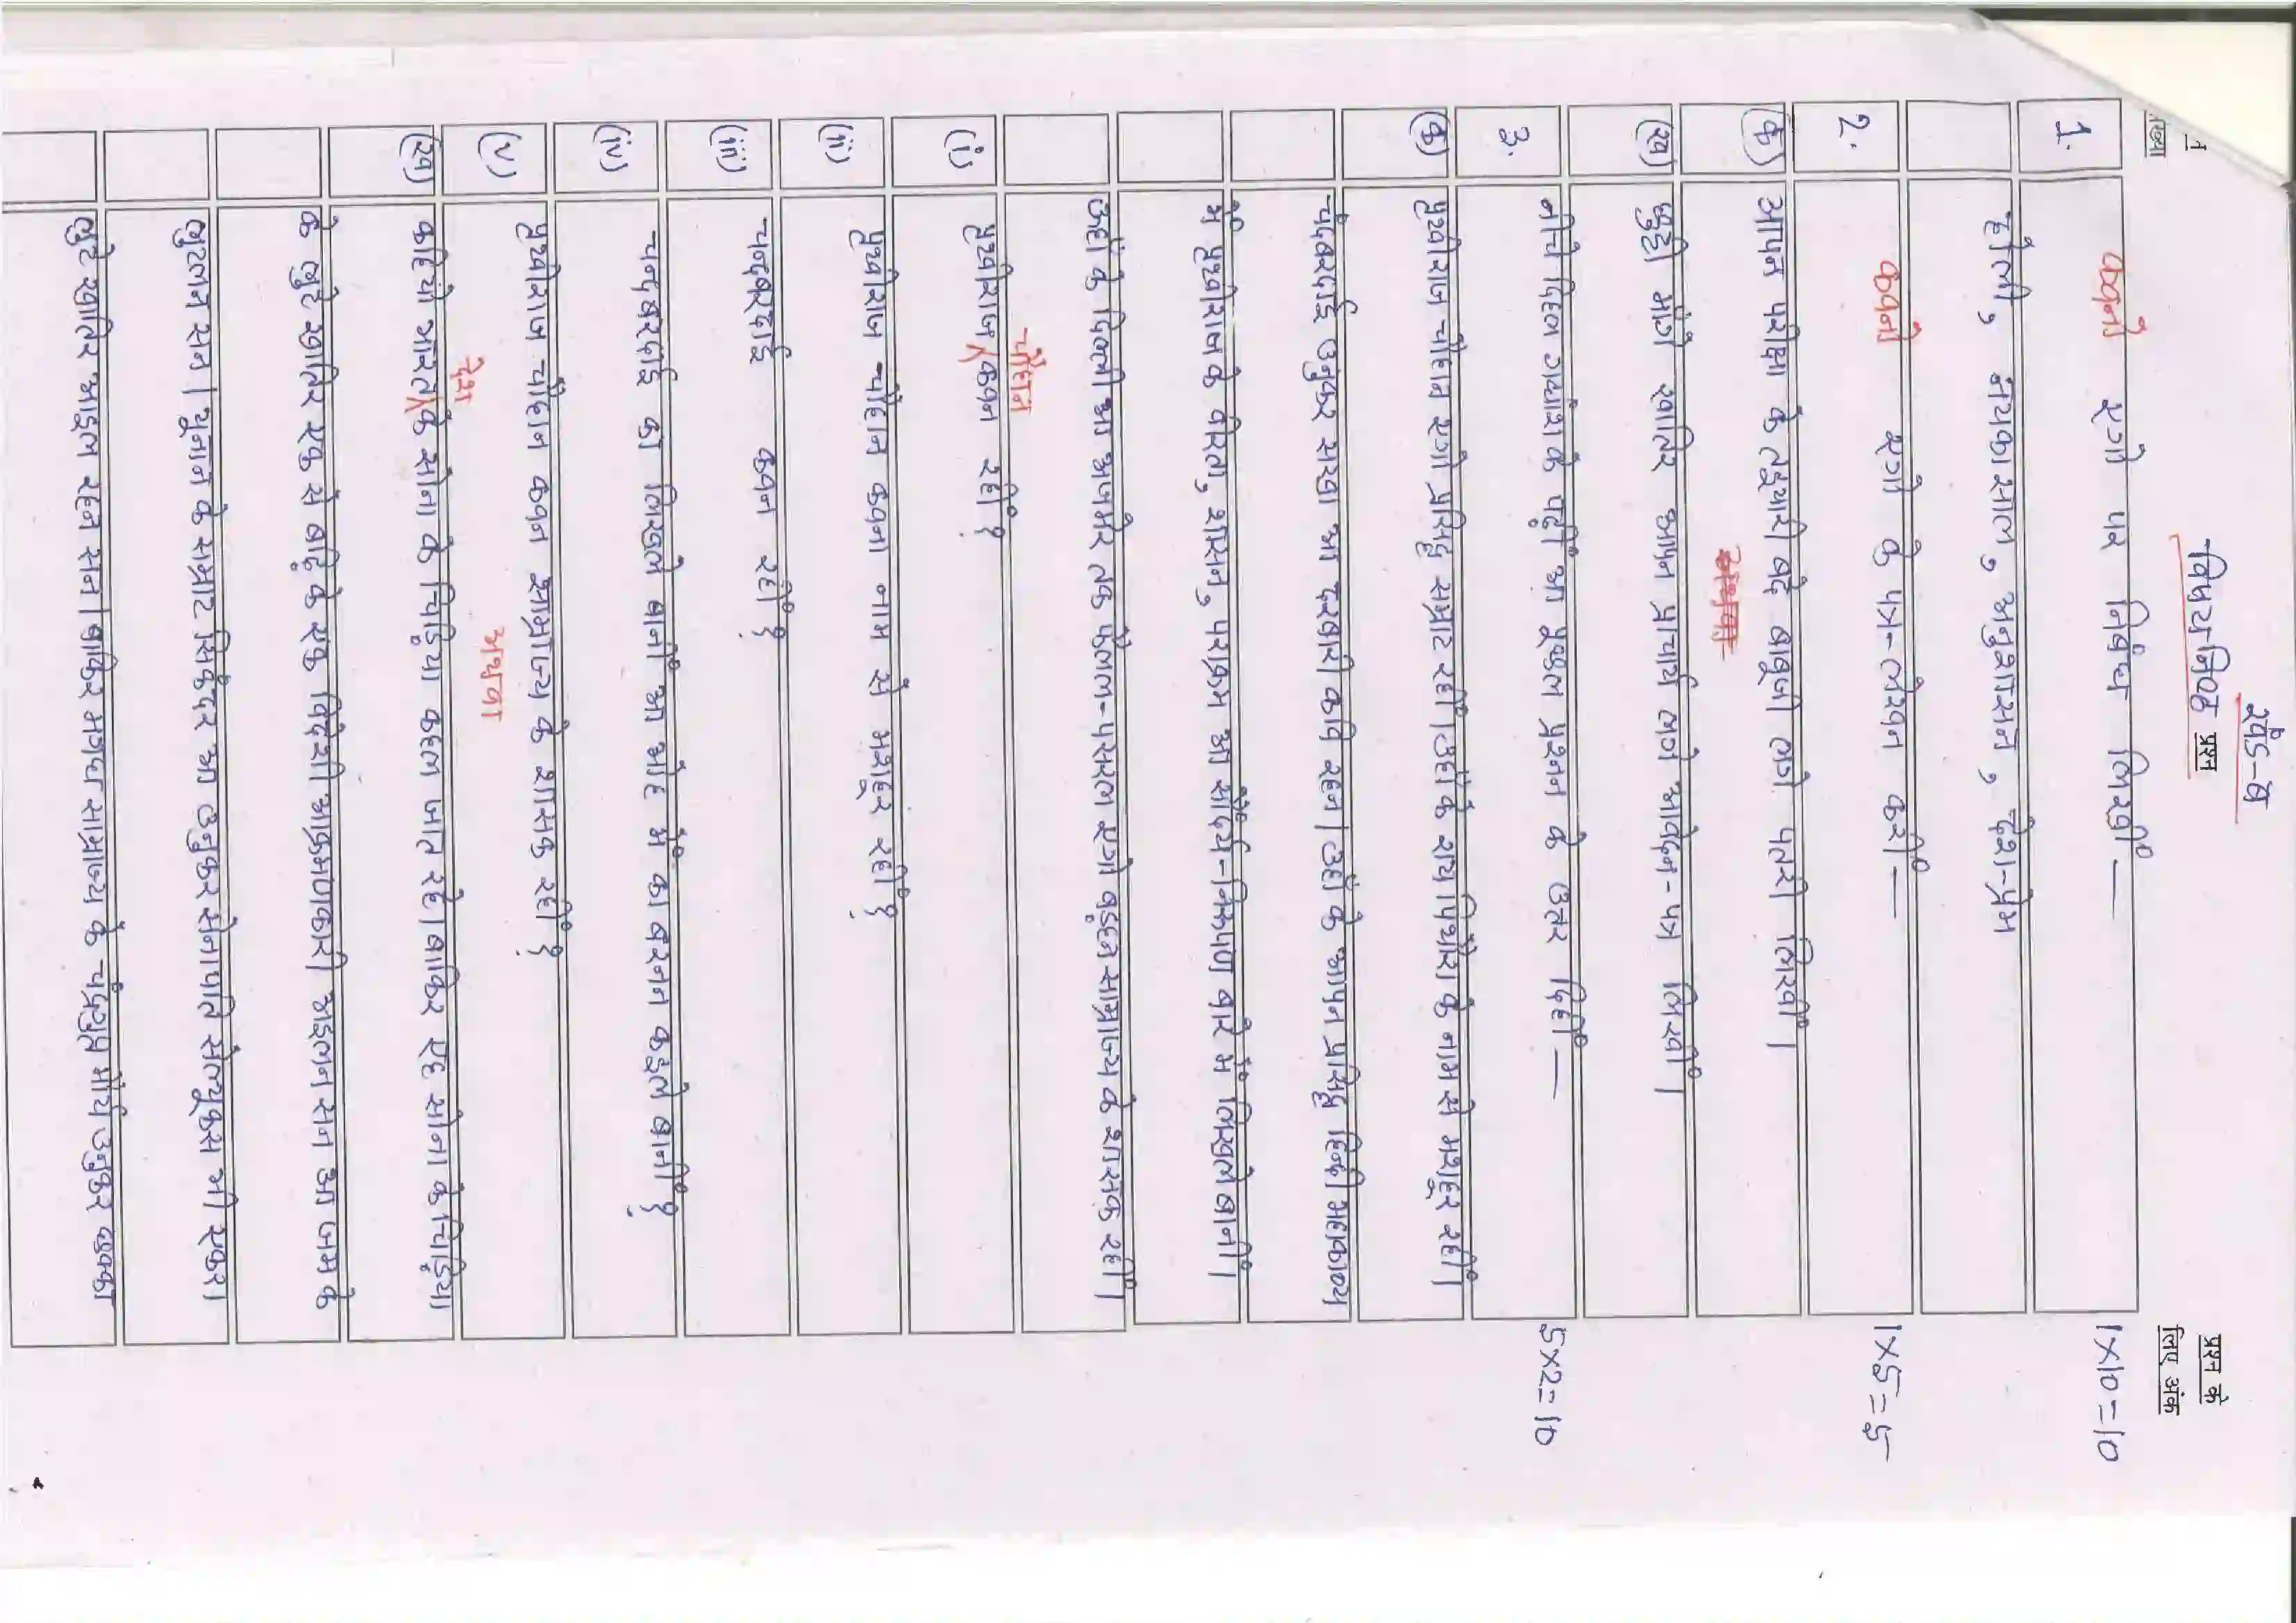 खंड-ब
विषयनिष्ठ प्रश्न
प्रश्न के
लिए अंक
1. कवनो एगो पर निबंध लिखीं— 1×10=10
होली, नयकासाल, अनुशासन, देश-प्रेम
2. कवनो एगो के पत्र-लेखन करीं— 1×5=5
(क) आपन परीक्षा के तइयारी बदे बाबूजी लगे पतरी लिखीं।
(ख) छुट्टी मांगे खातिर आपन प्राचार्य लगे आवेदन-पत्र लिखीं।
3. नीचे दिहल गद्यांश के पढ़ीं आ पूछल प्रश्नन के उत्तर दिहीं— 5×2=10
(क) पृथ्वीराज चौहान एगो प्रसिद्ध सम्राट रहीं। उहाँ के राय पिथौरा के नाम से मशहूर रहीं।
चंदबरदाई उनुकर सखा आ दरबारी कवि रहन। उहाँ के आपन प्रसिद्ध हिन्दी महाकाव्य
में पृथ्वीराज के वीरता, शासन, पराक्रम आ सौंदर्य-निरूपण बारे में लिखले बानी।
उहाँ के दिल्ली आ अजमेर तक फैलल-पसरल एगो वृहद साम्राज्य के शासक रहीं।
(i) पृथ्वीराज चौहान कवन रहीं?
(ii) पृथ्वीराज चौहान कवना नाम से मशहूर रहीं?
(iii) चन्दबरदाई कवन रहीं?
(iv) चन्दबरदाई का लिखले बानी आ ओह में का वरनन कइले बानीं?
(v) पृथ्वीराज चौहान कवन साम्राज्य के शासक रहीं?
अथवा
(ख) कहियो भारत देश के सोना के चिड़िया कहल जात रहे। बाकिर एह सोना के चिड़िया
के लूटे खातिर एक से बढ़ के एक विदेशी आक्रमणकारी अइलन सन आ जम के
लुटलन सन। यूनान के सम्राट सिकंदर आ उनुकर सेनापति सेल्यूकस भी एकरा
लूटे खातिर आइल रहन सन। बाकिर मगध साम्राज्य के चंद्रगुप्त मौर्य उनुकर छक्का